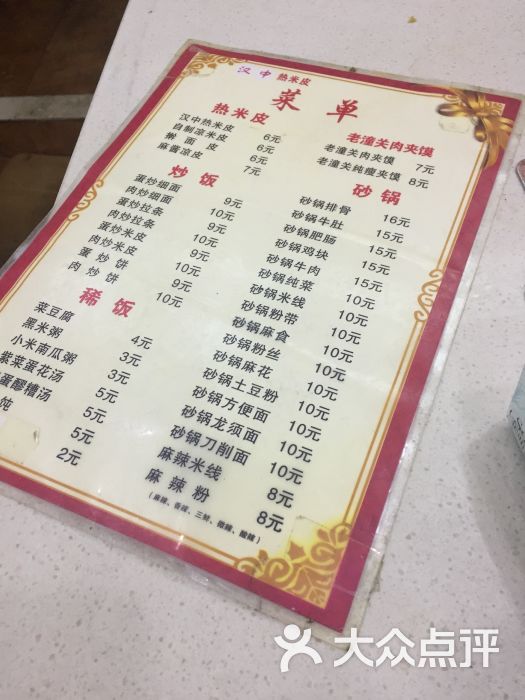 汉中 热米皮
菜 单
热米皮
汉中热米皮 6元
自制凉米皮 6元
擀面皮 6元
麻酱凉皮 7元
炒饭
蛋炒细面 9元
肉炒细面 10元
蛋炒拉条 9元
肉炒拉条 10元
蛋炒米皮 9元
肉炒米皮 10元
蛋炒饼 9元
肉炒饼 10元
稀饭
菜豆腐 4元
黑米粥 3元
小米南瓜粥 3元
紫菜蛋花汤 5元
蛋醪糟汤 5元
饨 5元
2元
老潼关肉夹馍
老潼关肉夹馍 7元
老潼关纯瘦夹馍 8元
砂锅
砂锅排骨 16元
砂锅牛肚 15元
砂锅肥肠 15元
砂锅鸡块 15元
砂锅牛肉 15元
砂锅纯菜 10元
砂锅米线 10元
砂锅粉带 10元
砂锅麻食 10元
砂锅粉丝 10元
砂锅麻花 10元
砂锅土豆粉 10元
砂锅方便面 10元
砂锅龙须面 10元
砂锅刀削面 10元
麻辣米线 8元
麻辣粉 8元
(麻辣、香辣、三鲜、微辣、酸辣)
大众点评